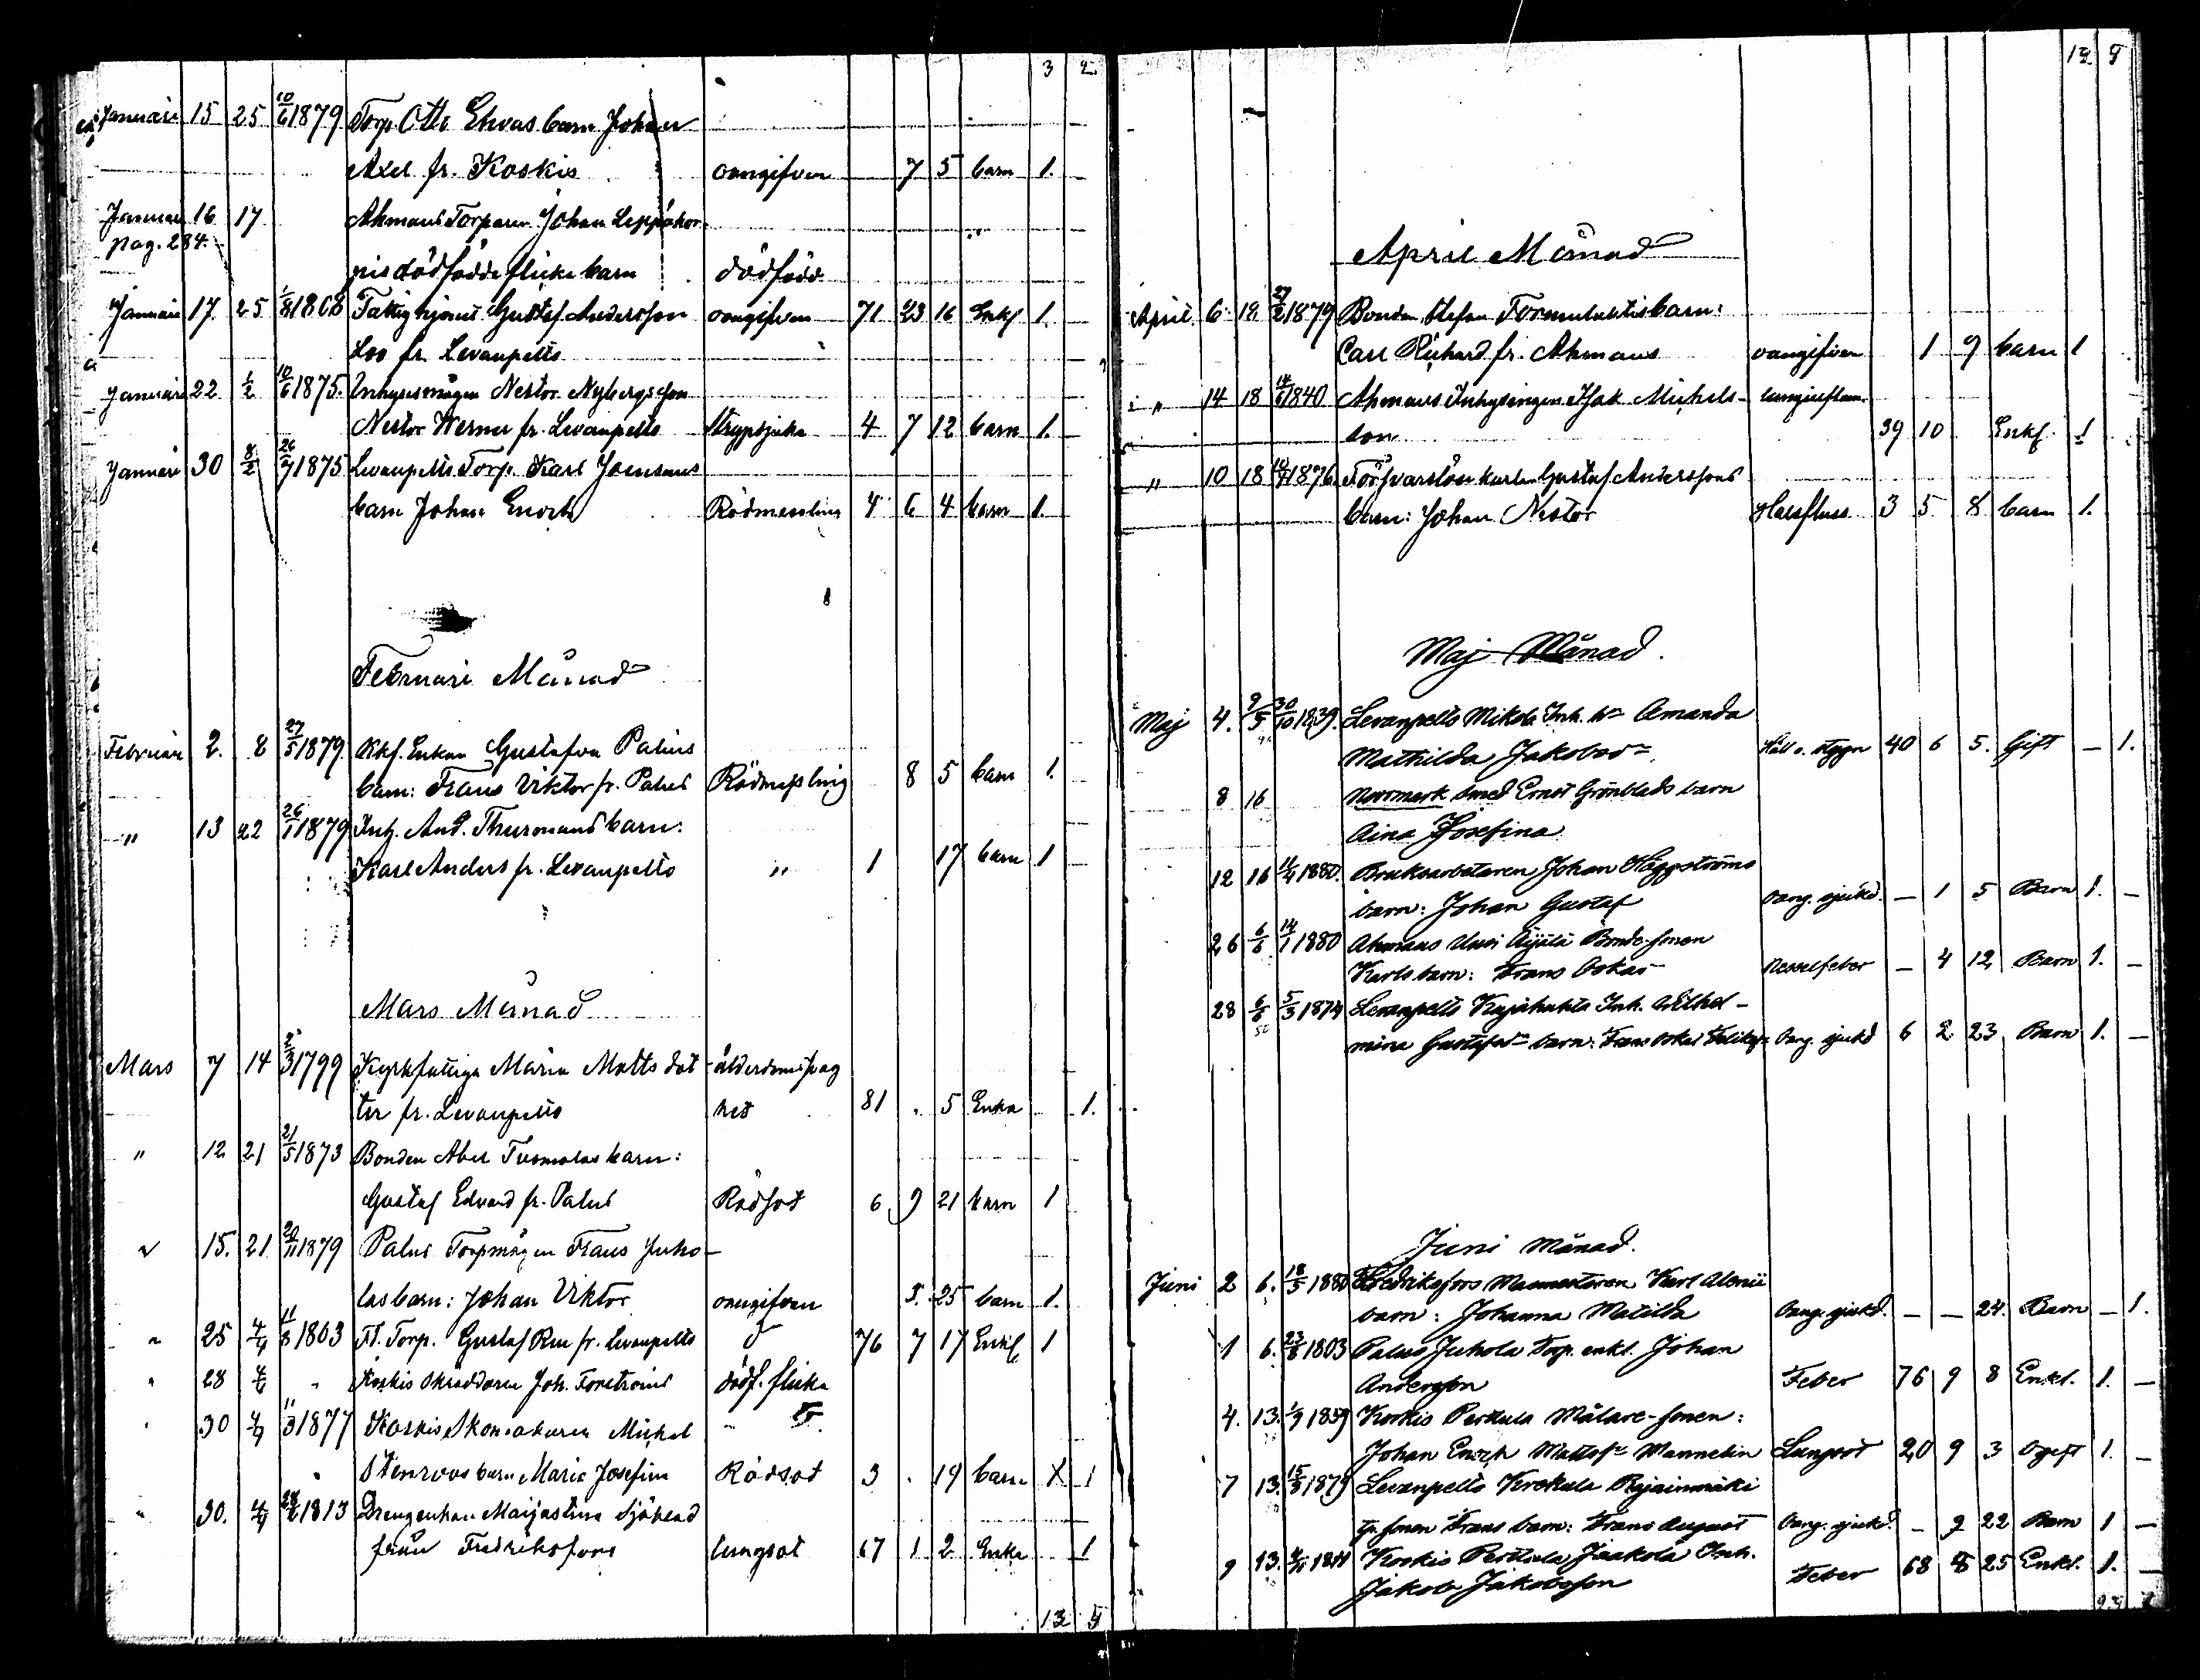 3 2
Januari 15 25 10/6 1879 Torp. Otto Elvas barn Johan
Axel fr. Koskis oangifven 7 5 barn 1. –
Januari 16 17 Ahmaus Torparen Johan Leppäkor-
pag. 284.
pis dödfödde flicke barn dödföd
Januari 17 25 1/8 1808 Fattighjonet Gustaf Andersson oangifven 71 23 16 Enkl. 1. –
Loo fr. Levanpelto
Januari 22 1/2 10/6 1875. Inhysesmågen Nestor Nybergs son
Nestor Werner fr. Levanpelto Strypsjuka 4 7 12 barn 1. –
Januari 30 8/2 26/7 1875 Levanpelto Torp. Karl Joensuus
barn Johan Enoch Rödmessling 4 6 4 barn 1. –
Februari Månad
Februari 2. 8 27/5 1879. Kkf. Enkan Gustafva Palus
barn: Frans Viktor fr. Palus Rödmessling 8 5 barn 1. –
" 13 22 26/1 1879 Inh. And. Thurmans barn:
Karl Anders fr. Levanpelto " 1 17 barn 1 –
Mars Månad
Mars 7 14 2/3 1799 Kyrkfattiga Maria Matts dot- ålderdomssvag
ter fr. Levanpelto het 81 . 5 Enka 1.
" 12 21 21/5 1873 Bonden Abel Tuomolas barn:
Gustaf Edvard fr. Palus Rödsot 6 9 21 barn 1
" 15. 21 20/11 1879 Palus Torpmågen Frans Juho-
las barn: Johan Viktor oangifven 3. 25 barn 1.
" 25 4/4 11/8 1803 Fl. Torp. Gustaf fr. Levanpelto 76 7 17 Enkl. 1
" 28 4/4 " Koskis Skräddaren Joh. Forströms dödf. flicka
" 30 4/4 11/3 1877 Koskis Skomakaren Michel
Stenroos barn Maria Josefina Rödsot 3 . 19 barn X 1
" 30. 4/4 28/2 1813 Drengenkan Maijastina Sjöblad
från Fredriksfors lungsot 67 1 2 Enka 1
13 5
13 5
April Månad
April 6 18 27/2 1879 Bonden Stefan barn:
Carl Richard fr. Ahmaus oangifven 1 9 barn 1
" 14 18 14/6 1840 Ahmaus Inhysingen Isak Michels-
son 39 10 Enkl. 1
" 10 18 1876 Försvarslöse karlen Gustaf Anderssons
barn: Johan Nestor Halsfluss 3 5 8 barn 1.
Maj Månad.
Maj 4. 9/5 30/10 1839. Levanpelto Mikola Inh. hu Amanda
Mathilda Jakobsdr Håll o. stygn 40 6 5. Gift – 1.
8 16 Norrmark smed Ernst Grönblads barn
Aina Josefina
12 16 11/4 1880. Bruksarbetaren Johan Häggströms
barn: Johan Gustaf oang. sjukd. – 1 5 Barn 1. –
26 6/6 14/1 1880 Ahmaus Uusi Äijälä Bonde-sonen
Karls barn: Frans Oskar Nesselfeber – 4 12 Barn 1. –
28 6/6 5/3 1874 Levanpelto Inh. Wilhel-
mina Gustafsdr barn: Frans Oskar oang. sjukd 6 2 23 Barn 1. –
Juni Månad.
Juni 2 6. 18/5 1880 Fredriksfors Karl
barn: Johanna Matilda oang. sjukd. – – 24. Barn – 1.
1 6. 23/8 1803 Palus Juhola Torp. enkl. Johan
Andersson Feber 76 9 8 Enkl. 1. –
4. 13. 1/9 1859 Koskis Perttula Målare-sonen:
Johan Enoch Mattss Mannelin Lungsot 20 9 3 Ogift 1. –
7 13. 15/8 1879 Levanpelto Krekula Rajainmäki
sonen Frans barn: Frans August oang. sjukd. – 9 22 Barn 1 –
9 13. 1811 Koskis Perttula Jaakola Inh.
Jakob Jakobsson Feber 68 8 25 Enkl. 1. –